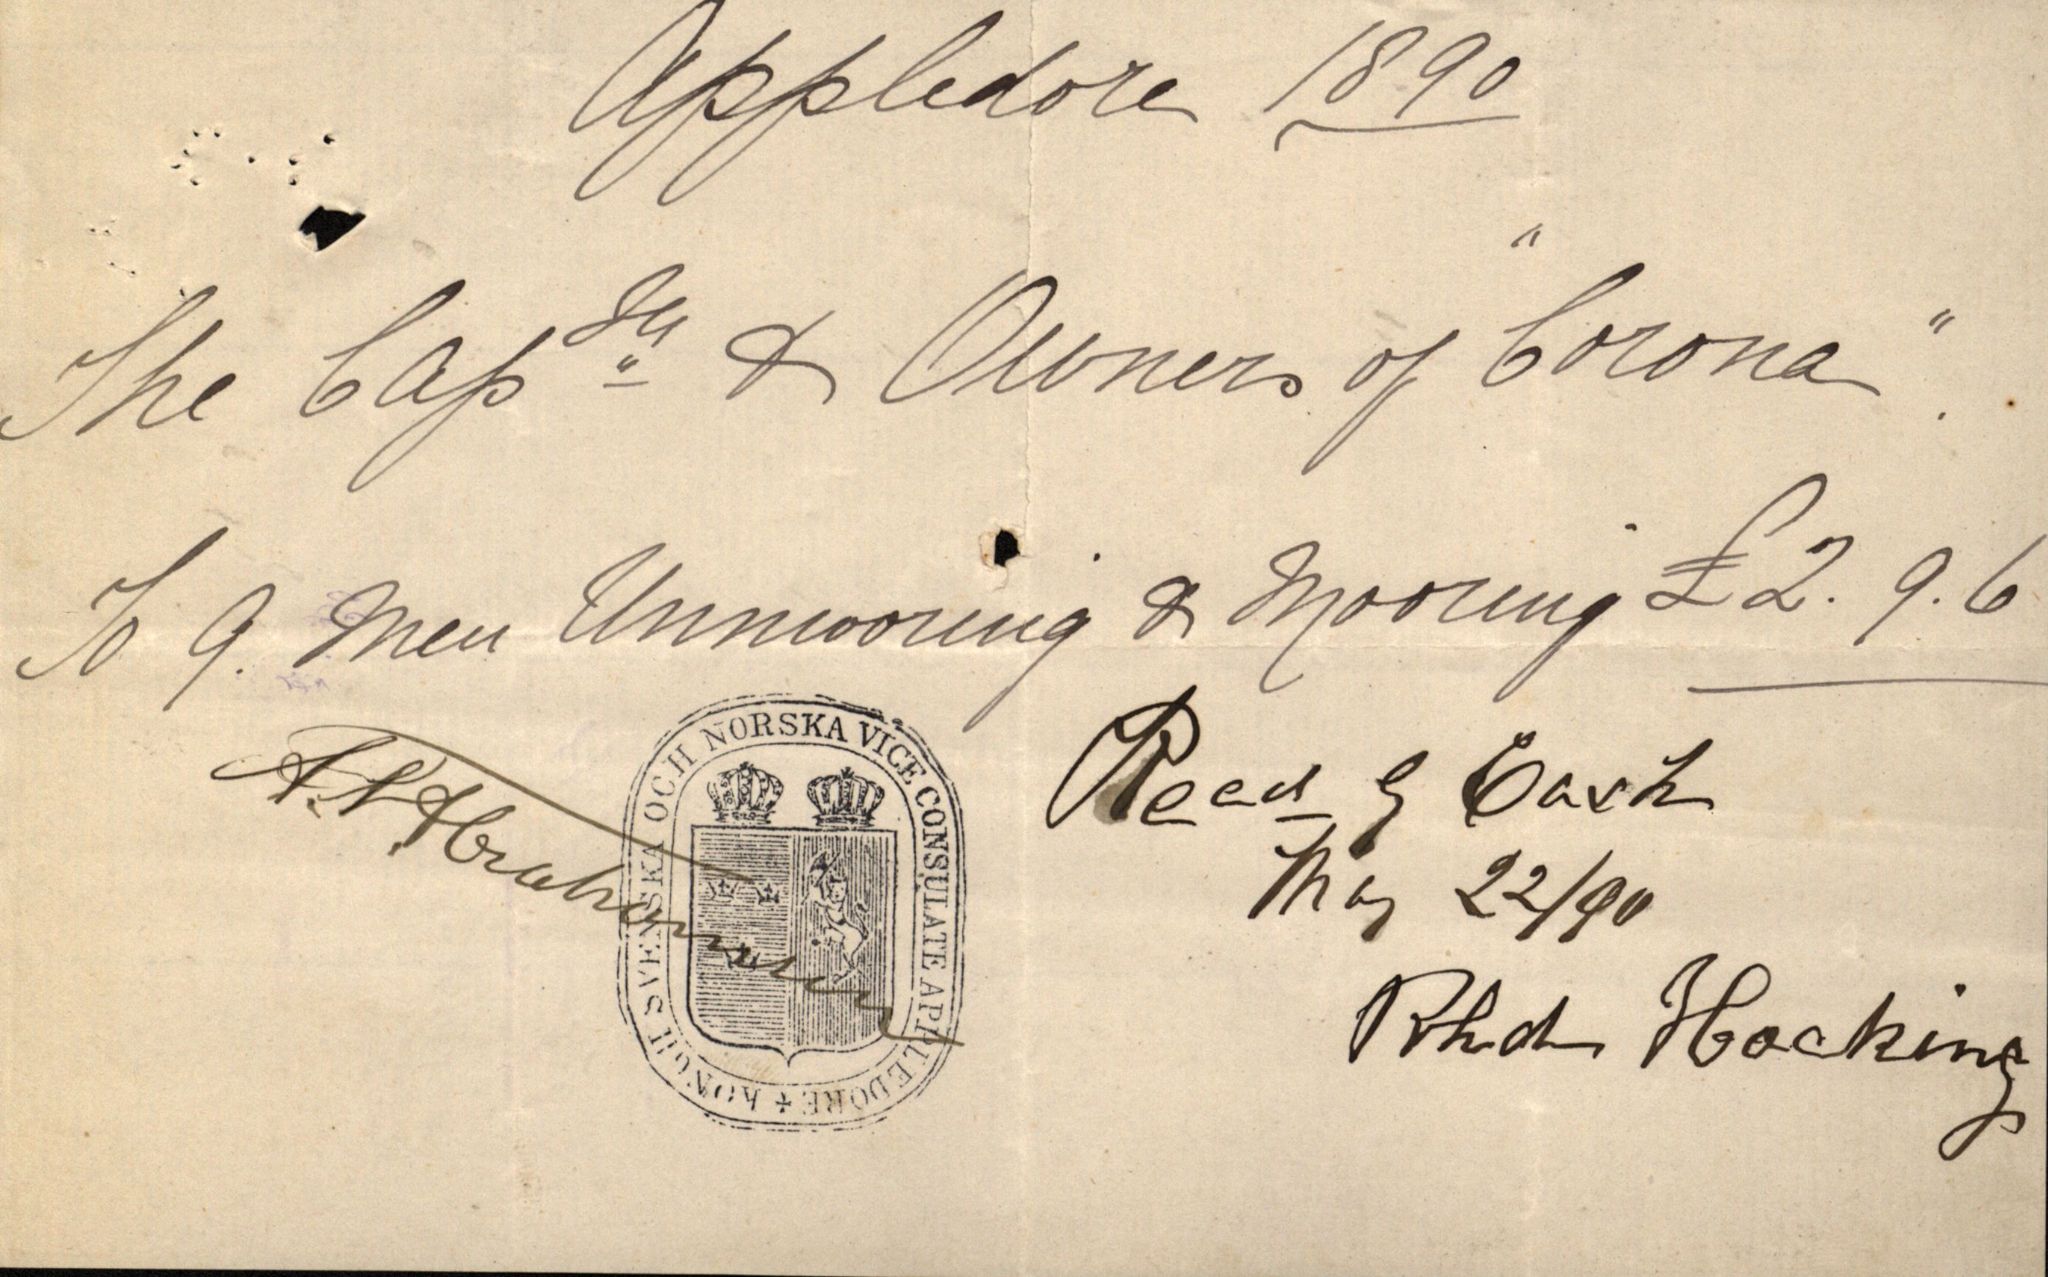 Appledore 1890
The Captn & Owners of "Corona".
To 9. Men Unmooring & Mooring £2.9.6
Recd by Cash
May 22/90
Richd Hocking
KONGL SVENSKA OCH NORSKA VICE CONSULATE APPLEDORE